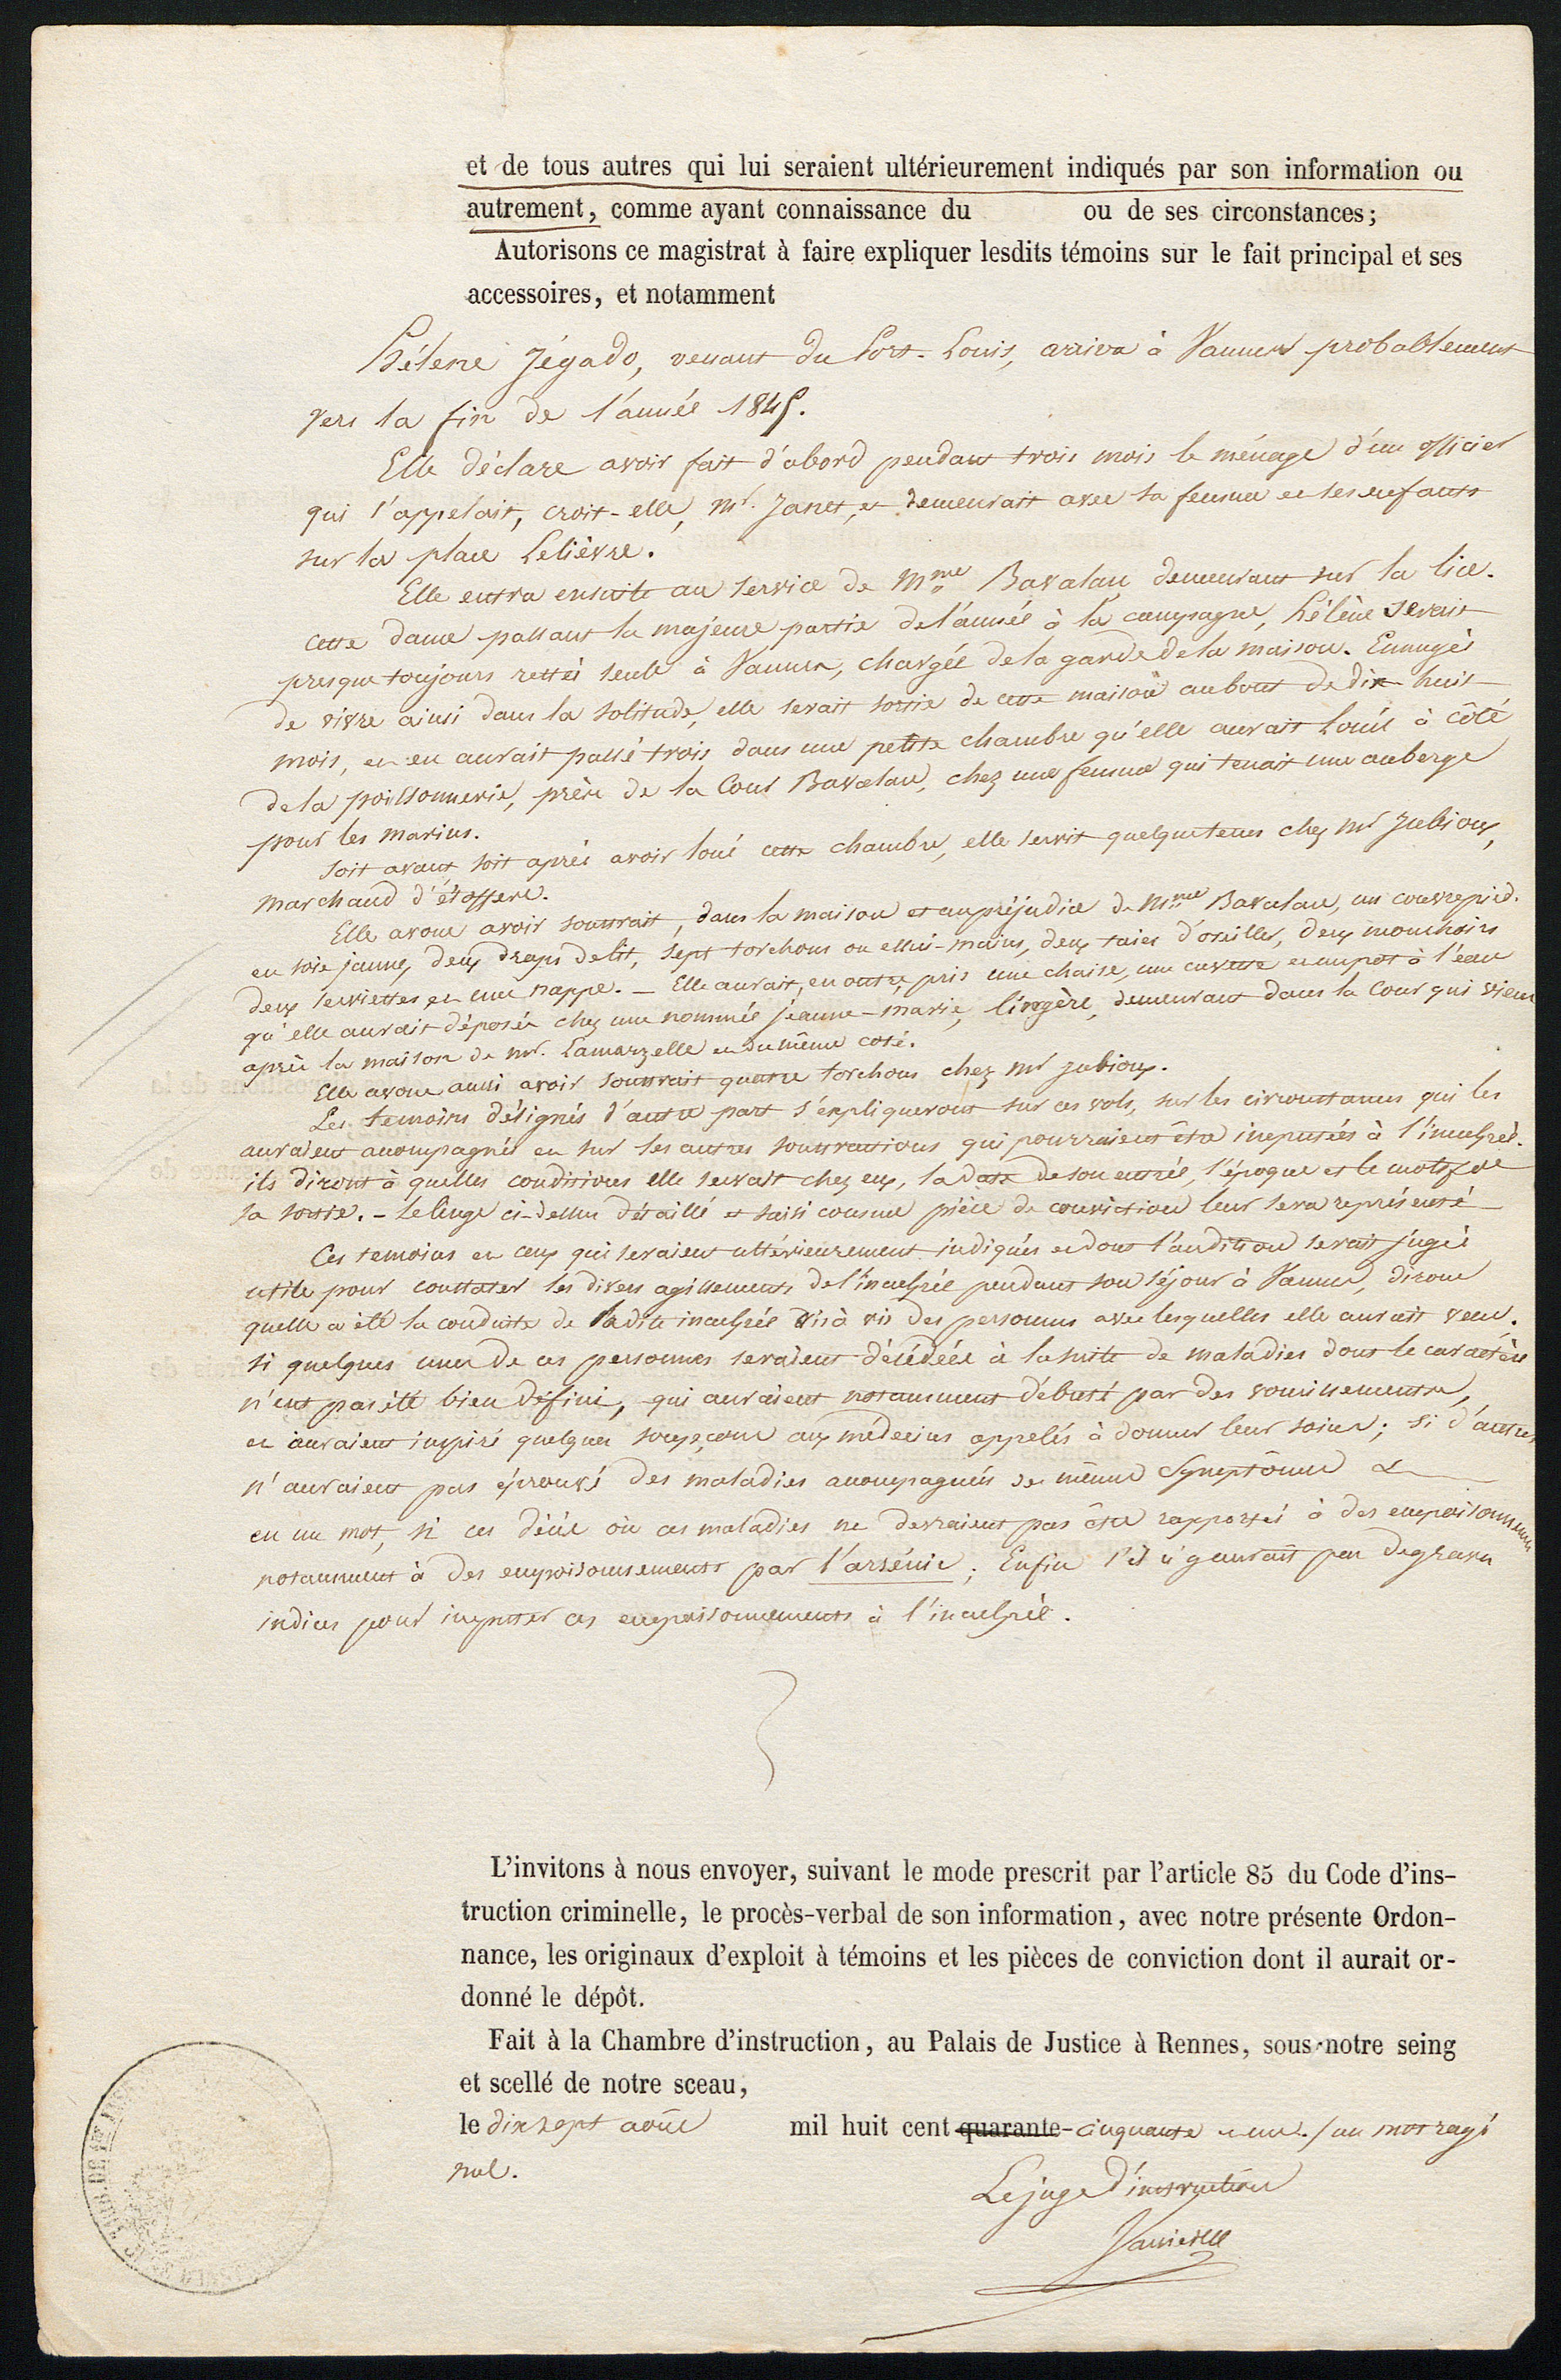 et de tous autres qui lui seraient ultérieurement indiqués par son information ou
autrement, comme ayant connaissance du ou de ses circonstances;
Autorisons ce magistrat à faire expliquer lesdits témoins sur le fait principal et ses
accessoires, et notamment
Hélene Jégado, venant du Port-Louis, arriva à Vannes probablement
vers la fin de l'année 1845.
Elle déclare avoir fait d'abord pendant trois mois le ménage d'un officier
qui s'appelait, croit-elle, Mr. Janet, et demeurait avec sa femme et ses enfants
sur la place Lelièvre.
Elle entra ensuite au service de Mme Bavalan demeurant sur la lice.
cette dame passant la majeure partie de l'année à la campagne, hélène serait
presque toujours restée seule à Vannes, chargée de la garde de la maison. Ennuyée
de vivre ainsi dans la solitude, elle serait sortie de cette maison au bout de dix-huit
mois, et en aurait passé trois dans une petite chambre qu'elle aurait louée à côté
de la poissonnerie, près de la Cour Bavalan, chez une femme qui tenait une auberge
pour les marins.
Soit avant soit après avoir loué cette chambre, elle servit quelque tems chez Mr Jubioux,
marchand d'étoffes.
Elle avoue avoir soustrait, dans la maison et au préjudice de Mme Bavalan, un couvrepied
en soie jaune, deux draps de lit, sept torchons ou essui-mains, deux taies d'oreiller, deux mouchoirs
deux serviettes et une nappe. – Elle aurait, en outre, pris une chaise, une cuvette et un pot à l'eau
qu'elle aurait déposés chez une nommée jeanne-marie, lingère, demeurant dans la Cour qui vient
après la maison de mr. Lamarzelle et du même coté.
Elle avoue aussi avoir soustrait quatre torchons chez Mr jubioux.
Les temoins désignés d'autre part s'expliqueront sur ces vols, sur les circonstances qui les
auraient accompagnés et sur les autres soustractions qui pourraient être imputées à l'inculpée.
ils diront à quelles conditions elle servait chez eux, la date de son entrée, l'époque et le motif de
sa sortie. – Le linge ci-dessus détaillé et saisi comme pièce de conviction leur sera représenté
Ces temoins et ceux qui seraient ultérieurement indiqués et dont l'audition serait jugée
utile pour constater les divers agissements de l'inculpée pendant son séjour à Vannes, diront
quelle a été la conduite de ladite inculpée vis à vis des personnes avec lesquelles elle aurait vécu.
si quelques unes de ces personnes seraient décédées à la suite de maladies dont le caractère
n'eut pas été bien défini, qui auraient notamment débuté par des vomissements,
et auraient inspiré quelques soupçons aux médecins appelés à donner leur soins; si d'autres
n'auraient pas éprouvé des maladies accompagnées de même symptômes &
en un mot, si ces décès où ces maladies ne devraient pas être rapportés à des empoisonnements
notamment à des empoisonnements par l'arsénic; Enfin s'il n'y aurait pas de graves
indices pour imputer ces empoisonnements à l'inculpée.
L'invitons à nous envoyer, suivant le mode prescrit par l'article 85 du Code d'ins-
truction criminelle, le procès-verbal de son information, avec notre présente Ordon-
nance, les originaux d'exploit à témoins et les pièces de conviction dont il aurait or-
donné le dépôt.
Fait à la Chambre d'instruction, au Palais de Justice à Rennes, sous notre seing
et scellé de notre sceau,
le dix sept août mil huit cent quarante-cinquante et un. / un mot rayé
nul.
Le juge d'instruction